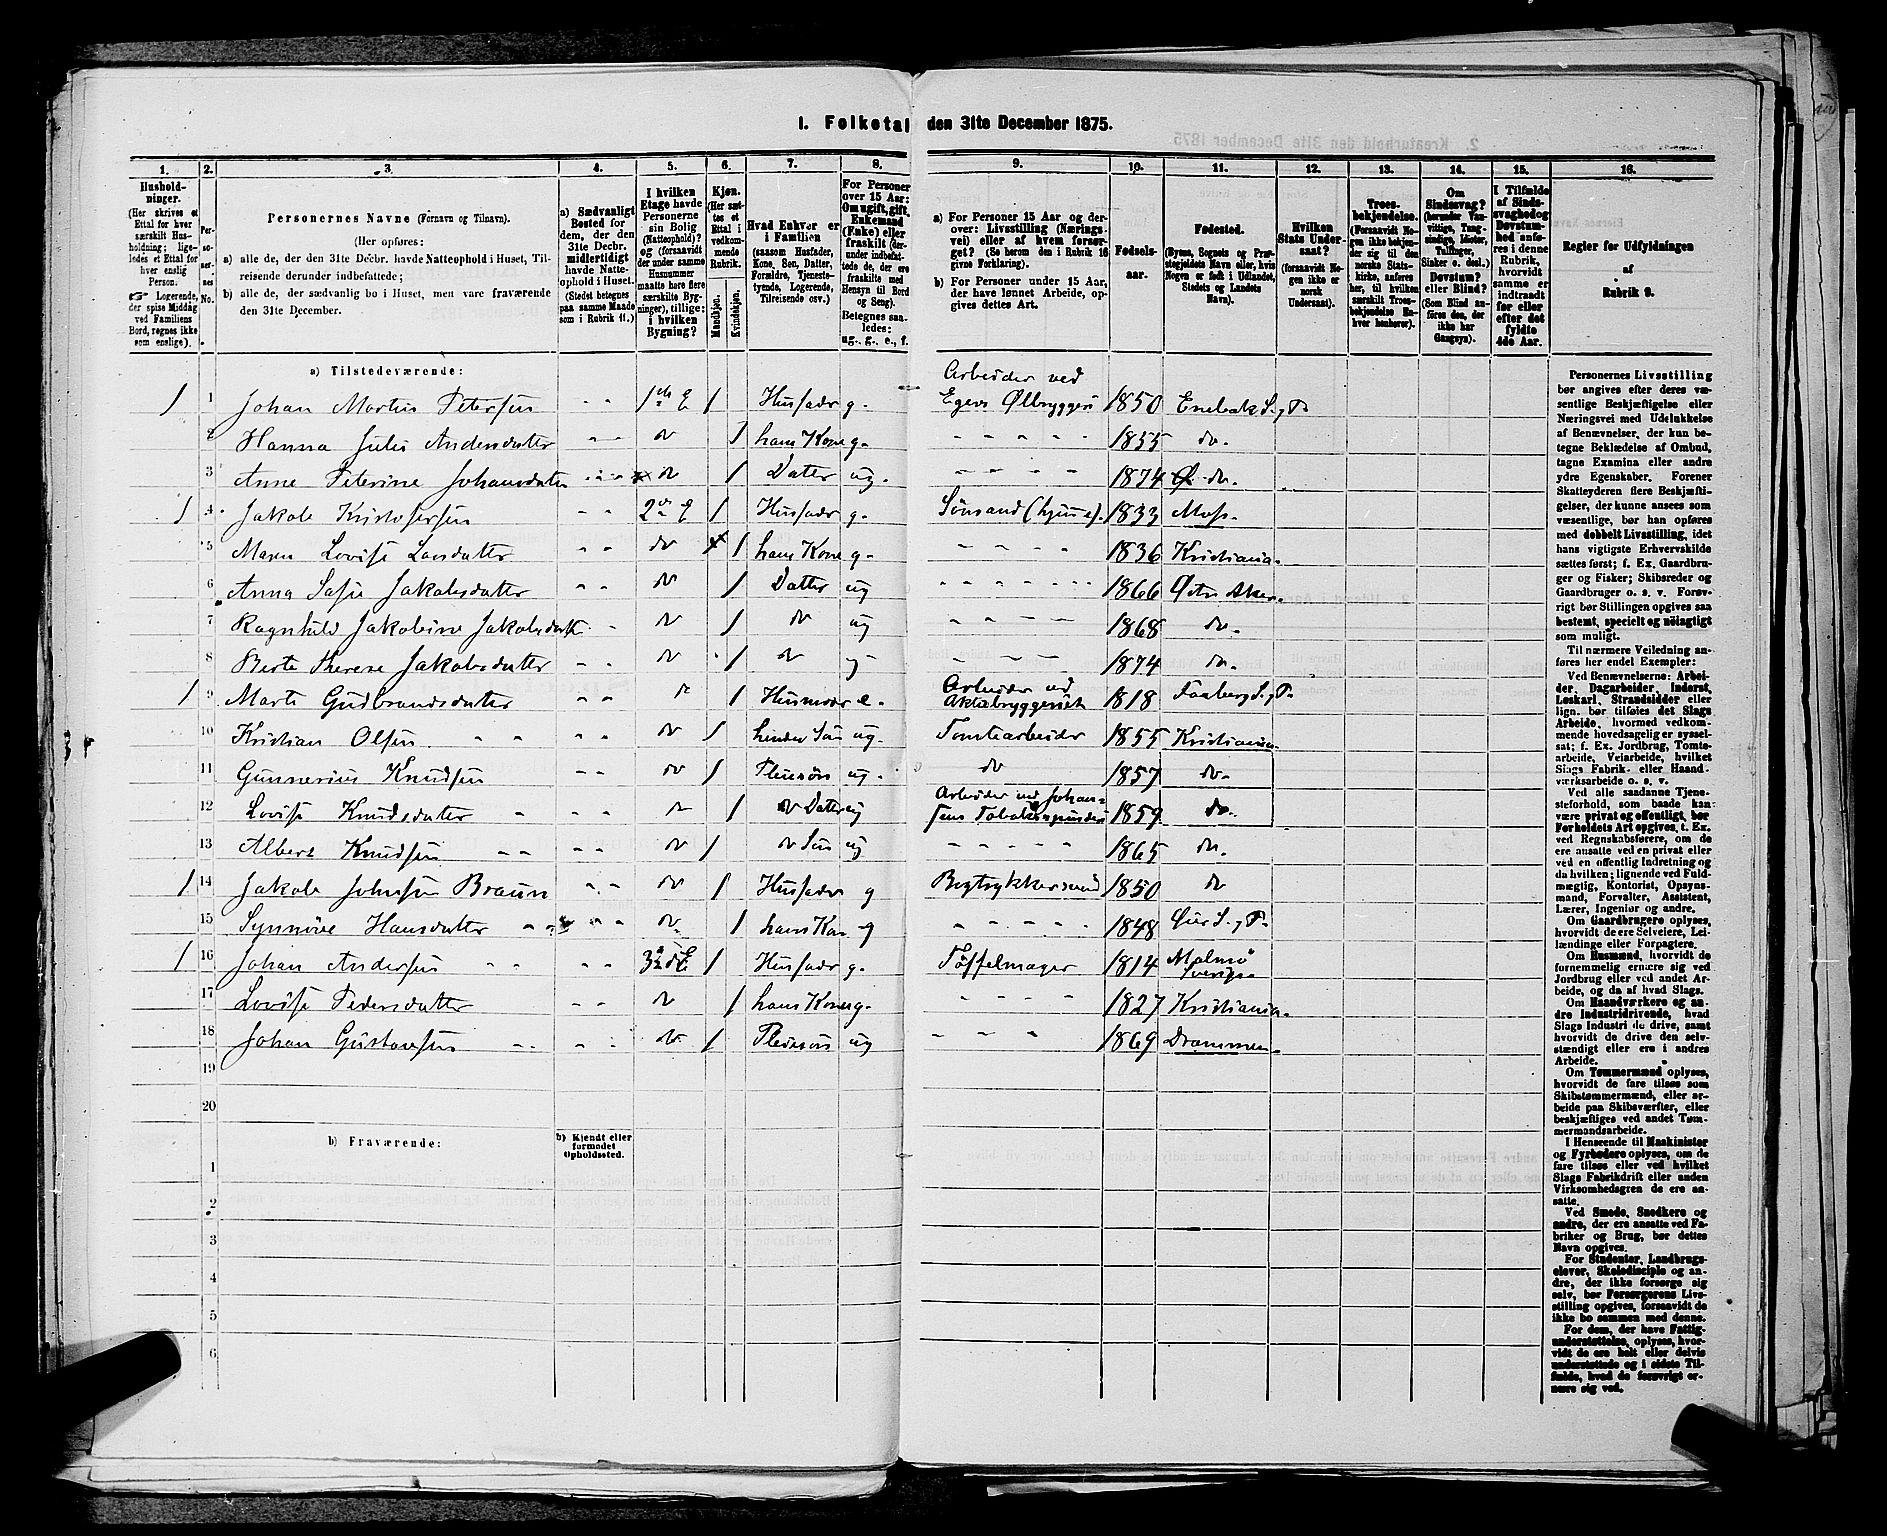 1. Folketal den 31te December 1875.
1. 2. 3. 4. 5. 6. 7. 8. 9. 10. 11. 12. 13. 14. 15. 16.
Hushold-
ninger.
(Her skrives et
Ettal for hver
særskilt Hus-
holdning; lige-
ledes et Ettal for
hver enslig
Person.
☞ Logerende,
der spise Middag
ved Familiens
Bord, regnes ikke
som enslige).
Per-
so-
ner-
nes
No.
Personernes Navne (Fornavn og Tilnavn).
(Her opføres:
a) alle de, der den 31te Decbr. havde Natteophold i Huset, Til-
reisende derunder indbefattede;
b) alle de, der sædvanlig bo i Huset, men vare fraværende
den 31te December.
a) Sædvanligt
Bosted for
dem, der den
31te Decbr.
midlertidigt
havde Natte-
ophold i Huset.
(Stedet betegnes
paa samme Maade
som i Rubrik 11.)
I hvilken
Etage havde
Personerne
sin Bolig
(Natteophold)?
og (forsaavidt
der under samme
Husnummer
maatte høre flere
særskilte Byg-
ninger), tillige:
i hvilken
Bygning?
Kjøn.
(Her sæt-
tes et
Ettal i
vedkom-
mende
Rubrik.
Mandkjøn.
Kvindekjøn.
Hvad Enhver er
i Familien
(saasom Husfader,
Kone, Søn, Datter,
Forældre, Tjeneste-
tyende, Logerende,
Tilreisende osv.)
For Personer
over 15 Aar:
Om ugift, gift,
Enkemand
(Enke) eller
fraskilt (der-
under indbefat-
tede de, der ere
fraskilte med
Hensyn til Bord
og Seng).
Betegnes saa-
ledes:
ug., g., e., f.
a) For Personer 15 Aar og der-
over: Livsstilling (Nærings-
vei) eller af hvem forsør-
get? (Se herom den i Rubrik 16
givne Forklaring).
b) For Personer under 15 Aar,
der have lønnet Arbeide, op-
gives dettes Art.
Fødsels-
aar.
Fødested.
(Byens, Sognets og Præ-
stegjeldets Navn eller, hvis
Nogen er født i Udlandet,
Stedets og Landets
Navn).
Hvilken
Stats Under-
saat?
(forsaavidt No-
gen ikke er
norsk
Undersaat).
Troes-
bekjendelse.
(Forsaavidt No-
gen ikke bekjen-
der sig til den
norske Stats-
kirke, anføres
her, til hvilken
særskilt Troes-
bekjendelse En-
hver henhører).
Om
Sindssvag?
(herunder Van-
vittige, Tung-
sindige, Idioter,
Tullinger,
Sinker o. desl.)
Døvstum?
eller Blind?
(Som Blind an-
føres den, der
ikke har
Gangsyn).
I Tilfælde
af Sinds-
svaghed og
Døvstum-
hed anfø-
res i denne
Rubrik,
hvorvidt
samme er
indtraadt
før eller
efter det
fyldte
4de Aar.
Regler for Udfyldningen
af
Rubrik 9.
a) Tilstedeværende:
Arbeider ved
1 1 Johan Martin Petersen 1 Husfader g. Egers Ølbryggeri 1850 Enebak S. og P.
2 Hanna Julie Andersdatter do 1 hans Kone g. 1855 do.
3 Anne Peterine Johansdatter do 1 Datter ug. 1874 do.
1 4 Jakob Kristofersen 1 Husfader g. Sømand (hjemme). 1833 Moss.
5 Maren Lovise Larsdatter do 1 hans Kone g. 1836 Kristiania.
6 Anna Sofie Jakobsdatter do 1 Datter ug 1866 Østre Aker.
7 Ragnhild Jakobine Jakobsdatter do 1 do ug 1868 do.
8 Berte Therese Jakobsdatter do 1 do ug 1874 do.
Arbeider ved
1 9 Marte Gudbrandsdatter do 1 Husmoder e. Aktiebryggeriet 1818 Faaberg S. og P.
10 Kristian Olsen do 1 hendes Søn ug. Tomtearbeider 1855 Kristiania
11 Gunnerius Knudsen do 1 Pleiesøn ug. do 1857 do.
Arbeider ved Johan-
12 Lovise Knudsdatter do 1 do Datter ug sens Tobakspinderi 1859 do.
13 Albert Knudsen do 1 do Søn ug 1865 do.
1 14 Jakob Johnsen Braun do 1 Husfader g Bogtrykkersvend 1850 do
15 Synnøve Hansdatter do 1 hans Kone g 1848 S. og P.
1 16 Johan Andersen 1 Husfader g. Tøffelmager 1814 Malmø
Sverige.
17 Lovise Pedersdatter do 1 hans Kone g. 1827 Kristiania.
18 Johan Gustavsen do 1 Pleiesøn ug 1869 Drammen.
19
20
b) Fraværende:
b) Kjendt eller
formodet
Opholdssted.
1
2
3
4
5
6
Personernes Livsstilling
bør angives efter deres væ-
sentlige Beskjæftigelse eller
Næringsvei med Udelukkelse
af Benævnelser, der kun be-
tegne Beklædelse af Ombud,
tagne Examina eller andre
ydre Egenskaber. Forener
Skatteyderen flere Beskjæfti-
gelser, der kunne ansees som
væsentlige, bør han opføres
med dobbelt Livsstilling, idet
hans vigtigste Erhvervskilde
sættes først; f. Ex. Gaardbru-
ger og Fisker; Skibsreder og
Gaardbruger o. s. v. Forøv-
rigt bør Stillingen opgives saa
bestemt, specielt og nøiagtigt
som muligt.
Til nærmere Veiledning an-
føres her endel Exempler:
Ved Benævnelserne: Arbei-
der, Dagarbeider, Inderst,
Løskarl, Strandsidder eller
lign. bør tilføies det Slags
Arbeide, hvormed vedkom-
mende hovedsagelig er syssel-
sat; f. Ex. Jordbrug, Tomte-
arbeide, Veiarbeide, hvilket
Slags Fabrik- eller Haand-
værksarbeide o. s. v.
Ved alle saadanne Tjene-
steforhold, som baade kan
være privat og offentligt, bør
Forholdets Art opgives, t. Ex.
ved Regnskabsførere, om de
ere ansatte ved en privat eller
ved en offentlig Indretning og
da hvilken; lignende ved Fuld-
mægtig, Kontorist, Opsyns-
mand, Forvalter, Assistent,
Lærer, Ingeniør og andre.
Om Gaardbrugere oplyses,
hvorvidt de ere Selveiere, Lei-
lændinge eller Forpagtere.
Om Husmænd, hvorvidt de
fornemmelig ernære sig ved
Jordbrug eller ved andet Ar-
beide, og da af hvad Slags.
Om Haandværkere og an-
dre Industridrivende, hvad
Slags Industri de drive, samt
hvorvidt de drive den selv-
stændigt eller ere i andres
Arbeide.
Om Tømmermænd oplyses,
hvorvidt de fare tilsøs som
Skibstømmermænd, eller ar-
beide paa Skibsværfter, eller
beskjæftiges ved andet Tøm-
mermandsarbeide.
I Henseende til Maskinister
og Fyrbødere oplyses, om de
fare tilsøs eller ved hvilket
Slags Fabrikdrift eller anden
Virksomhedsgren de ere an-
satte.
Ved Smede, Snedkere og
andre, der ere ansatte ved Fa-
briker og Brug, bør dettes
Navn opgives.
For Studenter, Landbrugs-
elever, Skoledisciple og an-
dre, der ikke forsørge sig
selv, bør Forsørgerens Livs-
stilling opgives, forsaavidt de
ikke bo sammen med denne.
For dem, der have Fattig-
understøttelse, oplyses, hvor-
vidt de ere helt eller delvis
understøttede og i sidste Til-
fælde, hvad de forøvrigt er-
nære sig ved.